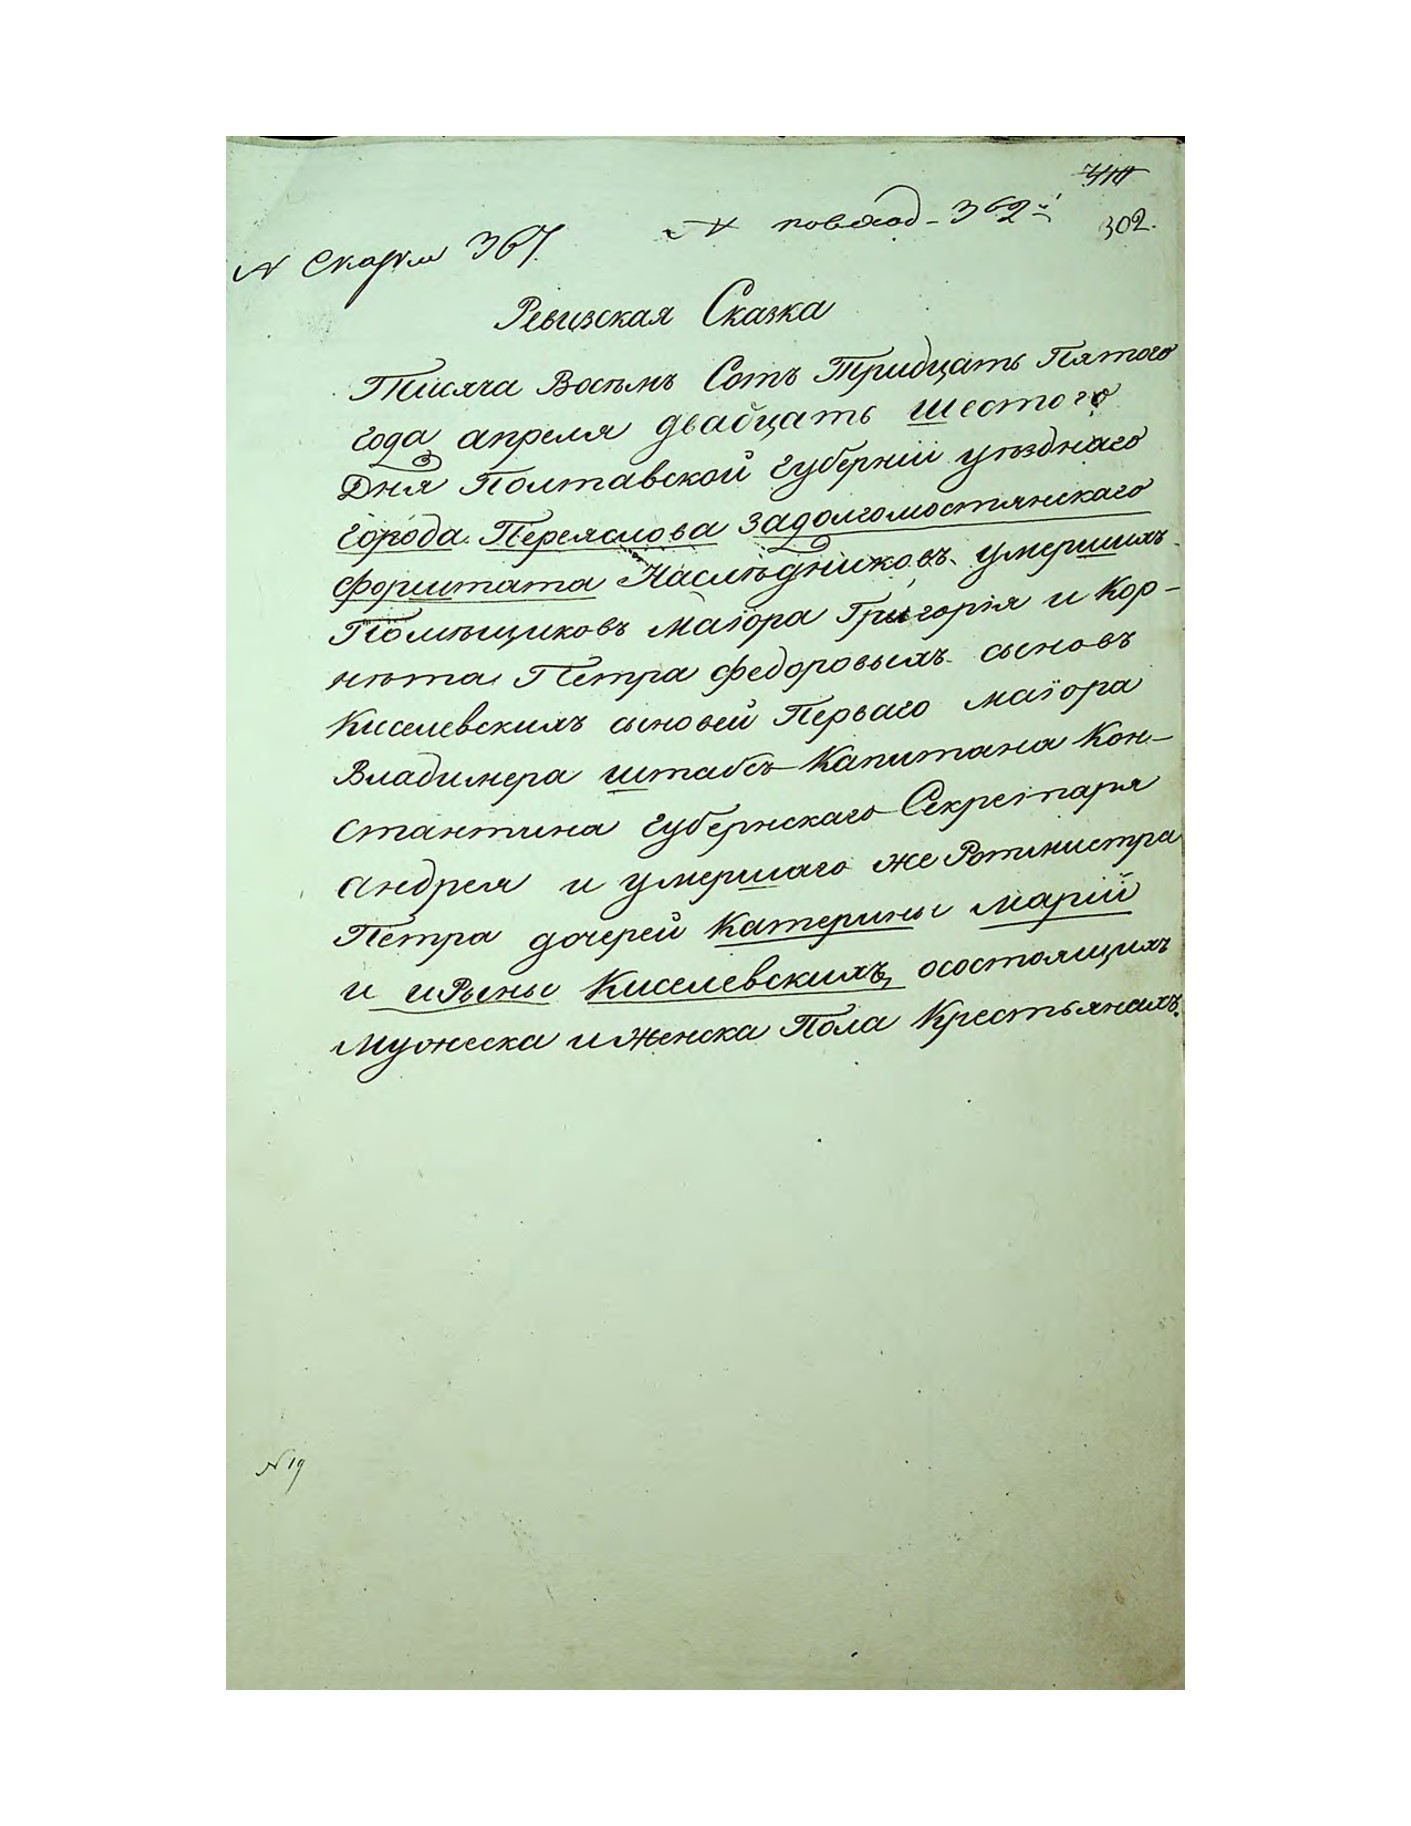 302.
№ Скарги 367. № повѣход - 362-й
Ревизская Сказка
Тисяча Восѣмъ Сотъ Тридцать Пятого
года апреля двадцать шестого
Дня Полтавской губерніи уѣзднаго
города Переяслова задолгомостянскаго
форштата Наслѣдниковъ умершихъ
Помѣщиковъ маіора Григорія и Кор-
нѣта Пѣтра Федоровыхъ сыновъ
Киселевскихъ сыновей Перваго маіора
Владимера штабсъ-Капитана Кон-
стантина губернскаго Секретаря
андрея и умершаго же Ротмистра
Пѣтра дочерей Катерины маріи
и ирыны Киселевскихъ, осостоящихъ
Мужеска и Женска Пола Крестьянахъ.
№ 19